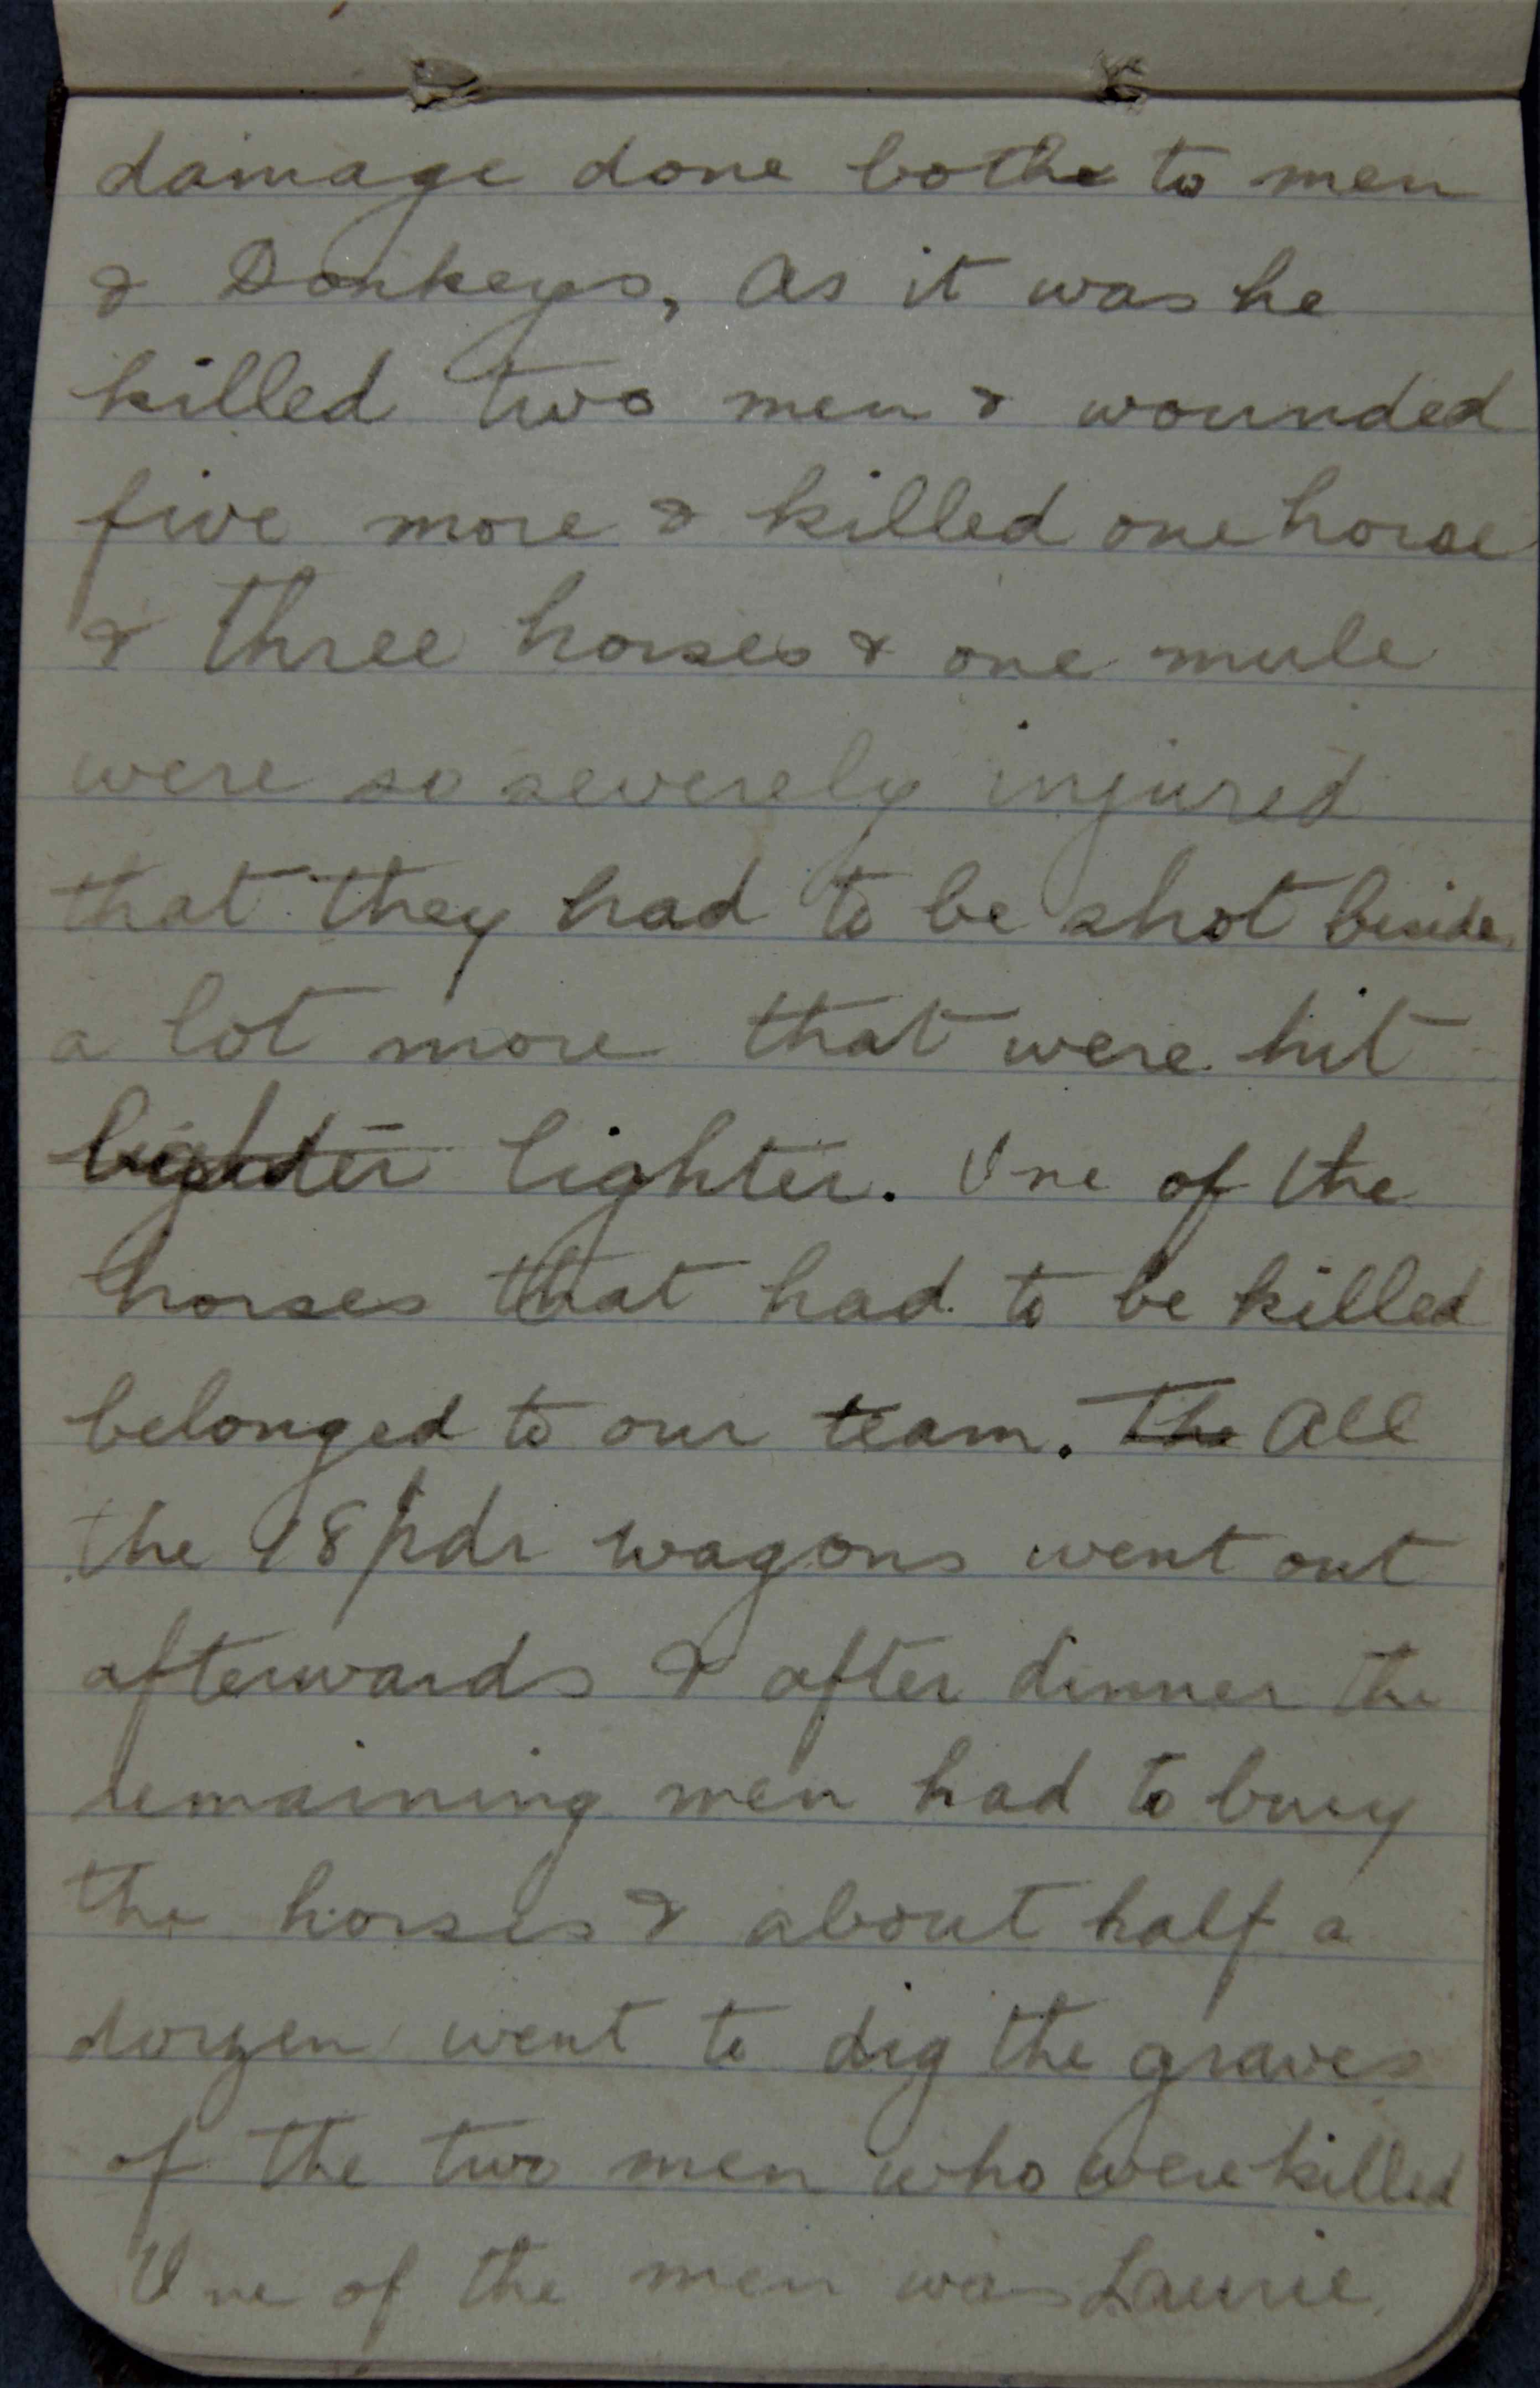 damage done bothe to men
& Donkeys, As it was he
killed two men & wounded
five more & killed one horse
& three horses & one mule
were so severely injured
that they had to be shot beside
a lot more that were hit
lighter. One of the
horses that had to be killed
belonged to our team. The All
the 18pdr wagons went out
afterwards & after dinner the
remaining men had to bury
the horses & about half a
dozzen went to dig the graves
of the two men who were killed
One of the men was Laurie